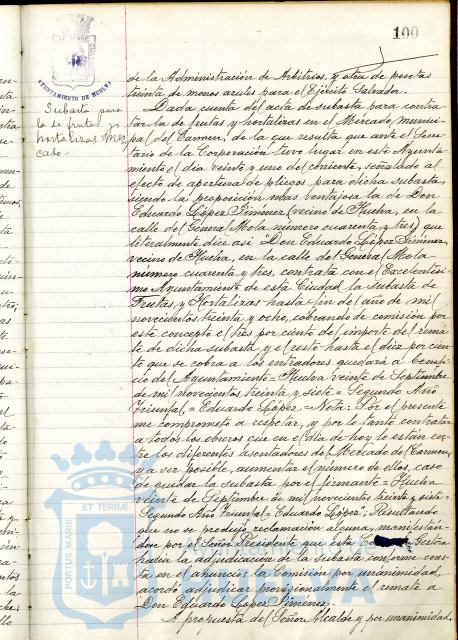 100
AYUNTAMIENTO DE HUELVA
Subasta para
la de frutas y
hortalizas Mer-
cado.-
de la Administración de Arbitrios, y otra de pesetas
treinta de monos azules para el Ejército Salvador.
Dada cuenta del acta de subasta para contra-
tar la de frutas y hortalizas en el Mercado munici-
pal del Carmen, de la que resulta que ante el Secre-
tario de la Corporación tuvo lugar en este Ayunta-
miento el dia veinte y uno del corriente, señalado al
efecto de apertura de pliegos para dicha subasta,
siendo la proposición mas ventajosa la de Don
Eduardo López Jiménez (vecino de Huelva, en la
calle del General Mola número cuarenta y tres) que
literalmente dice así "Don Eduardo López Jiménez,
vecino de Huelva, en la calle del General Mola
número cuarenta y tres, contrata con el Excelentísi-
mo Ayuntamiento de esta Ciudad la subasta de
Frutas y Hortalizas hasta fin de año de mil
novecientos treinta y ocho, cobrando de comisión por
este concepto el tres por ciento del importe del rema-
te de dicha subasta y el resto hasta el diez por cien-
to que se cobra a los entradores quedará a benefi-
cio del Ayuntamiento = Huelva veinte de Septiembre
de mil novecientos treinta y siete = Segundo Año
Triunfal, = Eduardo López = Nota: Por el presente
me comprometo a respetar, y por lo tanto contratar
a todos los obreros que en el dia de hoy le están en-
tre los diferentes asentadores del Mercado del Carmen,
y a ser posible, aumentar el número de ellos, caso
de quedar la subasta por el firmante = Huelva
veinte de Septiembre de mil novecientos treinta y siete =
Segundo Año Triunfal = Eduardo López"; Resultando
que no se produjo reclamación alguna, manifestán-
dose por el Señor Presidente que esta Gestora
hacia la adjudicación de la subasta conforme cons-
ta en el anuncio; la Comisión por unanimidad,
acordó adjudicar provisionalmente el remate a
Don Eduardo López Jiménez.
A propuesta del Señor Alcalde y por unanimidad,
PORTUS MARIS
ET TERRÆ
Ayuntamiento de